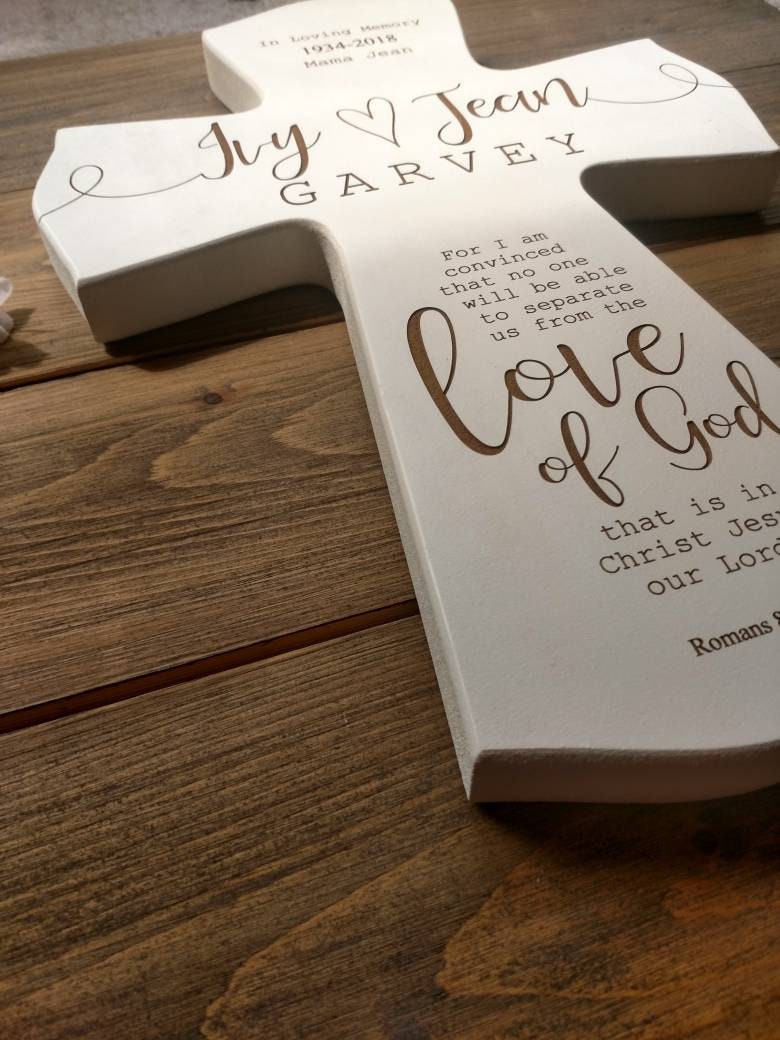 In Loving Memory
1934-2018
Mama Jean
Ivy Jean
GARVEY
For I am
convinced
that no one
will be able
to separate
us from the
love
of God
that is in
Christ
our Lord
Romans